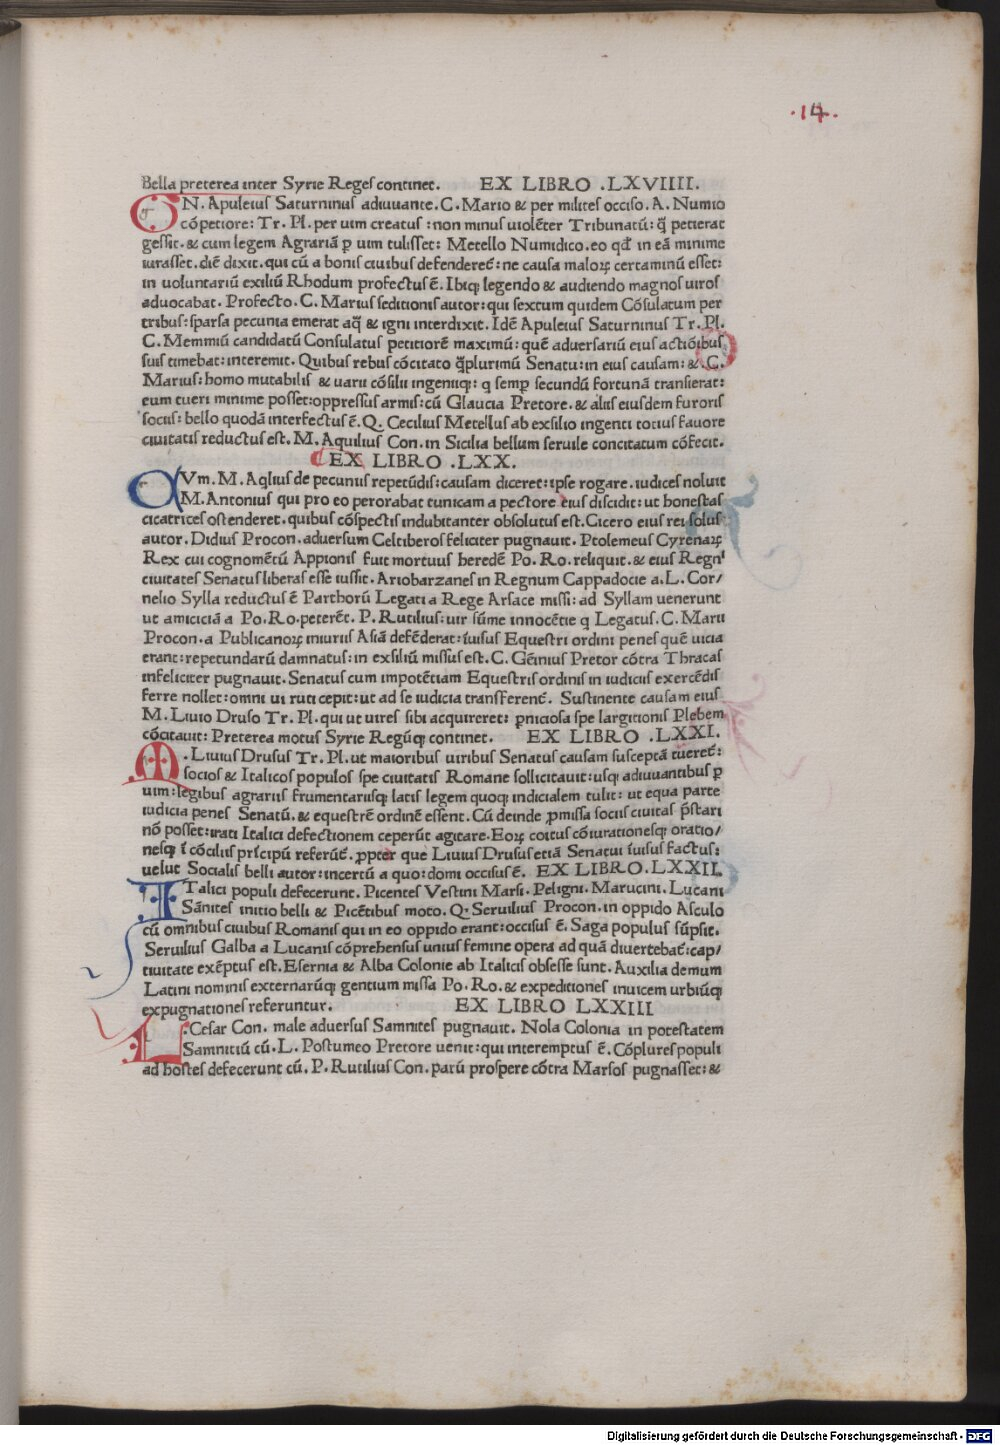 ·14·
Bella preterea inter Syrie Reges continet. EX LIBRO .LXVIIII.
GN. Apuleius Saturninus adiuuante. C. Mario & per milites occiso. A. Numio
cōpetiore: Tr. Pl. per uim creatus : non minus uiolēter Tribunatū: q̄ petierat
gessit. & cum legem Agrariā ꝑ uim tulisset: Metello Numidico. eo qđ in eā minime
iurasset. diē dixit. qui cū a bonis ciuibus defenderet̄: ne causa maloꝝ certaminū esset:
in uoluntariū exiliū Rhodum profectus ē. Ibiqꝫ legendo & audiendo magnos uiros
aduocabat. Profecto. C. Marius seditionis autor: qui sextum quidem Cōsulatum per
tribus: sparsa pecunia emerat aq̄ & igni interdixit. Idē Apuleius Saturninus Tr. Pl.
C. Memmiū candidatū Consulatus petitorē maximū: quē aduersariū eius actiōibus
suis timebat: interemit. Quibus rebus cōcitato q̄plurimū Senatu: in eius causam: & .C.
Marius: homo mutabilis & uarii cōsilii ingeniiqꝫ: q semꝑ secundū fortunā transierat:
eum tueri minime posset: oppressus armis: cū Glaucia Pretore. & aliis eiusdem furoris
sociis: bello quodā interfectus ē. Q. Cecilius Metellus ab exsilio ingenti totius fauore
ciuitatis reductus est. M. Aquilius Con. in Sicilia bellum seruile concitatum cōfecit.
EX LIBRO .LXX.
CVm. M. Aqlius de pecuniis repetūdis: causam diceret: ipse rogare. iudices noluit
M. Antonius qui pro eo perorabat tunicam a pectore eius discidit: ut honestas
cicatrices ostenderet. quibus cōspectis indubitanter obsolutus est. Cicero eius rei solus
autor. Didius Procon. aduersum Celtiberos feliciter pugnauit. Ptolemeus Cyrenaꝝ
Rex cui cognomētū Appionis fuit mortuus heredē Po. Ro. reliquit. & eius Regni
ciuitates Senatus liberas esse iussit. Ariobarzanes in Regnum Cappadocie a. L. Cor/
nelio Sylla reductus ē Parthorū Legati a Rege Arsace missi: ad Syllam uenerunt
ut amiciciā a Po. Ro. peterēt. P. Rutilius: uir sūme innocētie q Legatus. C. Marii
Procon. a Publicanoꝝ iniuriis Asiā defēderat: iuisus Equestri ordini penes quē uicia
erant: repetundarū damnatus: in exsiliū missus est. C. Gēinius Pretor cōtra Thracas
infeliciter pugnauit. Senatus cum impotētiam Equestris ordinis in iudiciis exercēdis
ferre nollet: omni ui niti cepit: ut ad se iudicia transferent̄. Sustinente causam eius
M. Liuio Druso Tr. Pl. qui ut uires sibi acquireret: ꝑniciosa spe largitionis Plebem
cōcitauit: Preterea motus Syrie Regūqꝫ continet. EX LIBRO .LXXI.
M. Liuius Drusus Tr. Pl. ut maioribus uiribus Senatus causam susceptā tueret̄:
socios & Italicos populos spe ciuitatis Romane sollicitauit: usqꝫ adiuuantibus ꝑ
uim: legibus agrariis frumentariisqꝫ latis legem quoqꝫ indicialem tulit: ut equa parte
iudicia penes Senatū. & equestrē ordinē essent. Cū deinde ꝓmissa sociis ciuitas p̄stari
nō posset: irati Italici defectionem ceperūt agitare. Eoꝝ coitus cōiurationesqꝫ oratio/
nesqꝫ ī cōciliis prīcipū referūt̄. ꝓpter que Liuius Drusus etiā Senatui iuisus factus:
uelut Socialis belli autor: incertū a quo: domi occisus ē. EX LIBRO. LXXII.
ITalici populi defecerunt. Picentes Vestini Marsi. Peligni. Marucini. Lucani
Sānites initio belli & Picētibus moto. Q. Seruilius Procon. in oppido Asculo
cū omnibus ciuibus Romanis qui in eo oppido erant: occisus ē. Saga populus sūpsit.
Seruilius Galba a Lucanis cōprehensus unius femine opera ad quā diuertebat̄: cap/
tiuitate exēptus est. Esernia & Alba Colonie ab Italicis obsesse sunt. Auxilia demum
Latini nominis externarūqꝫ gentium missa Po. Ro. & expeditiones inuicem urbiūqꝫ
expugnationes referuntur. EX LIBRO LXXIII
L. Cesar Con. male aduersus Samnites pugnauit. Nola Colonia in potestatem
Samnitiū cū. L. Postumeo Pretore uenit: qui interemptus ē. Cōplures populi
ad hostes defecerunt cū. P. Rutilius Con. parū prospere cōtra Marsos pugnasset: &
Digitalisierung gefördert durch die Deutsche Forschungsgemeinschaft - DFG